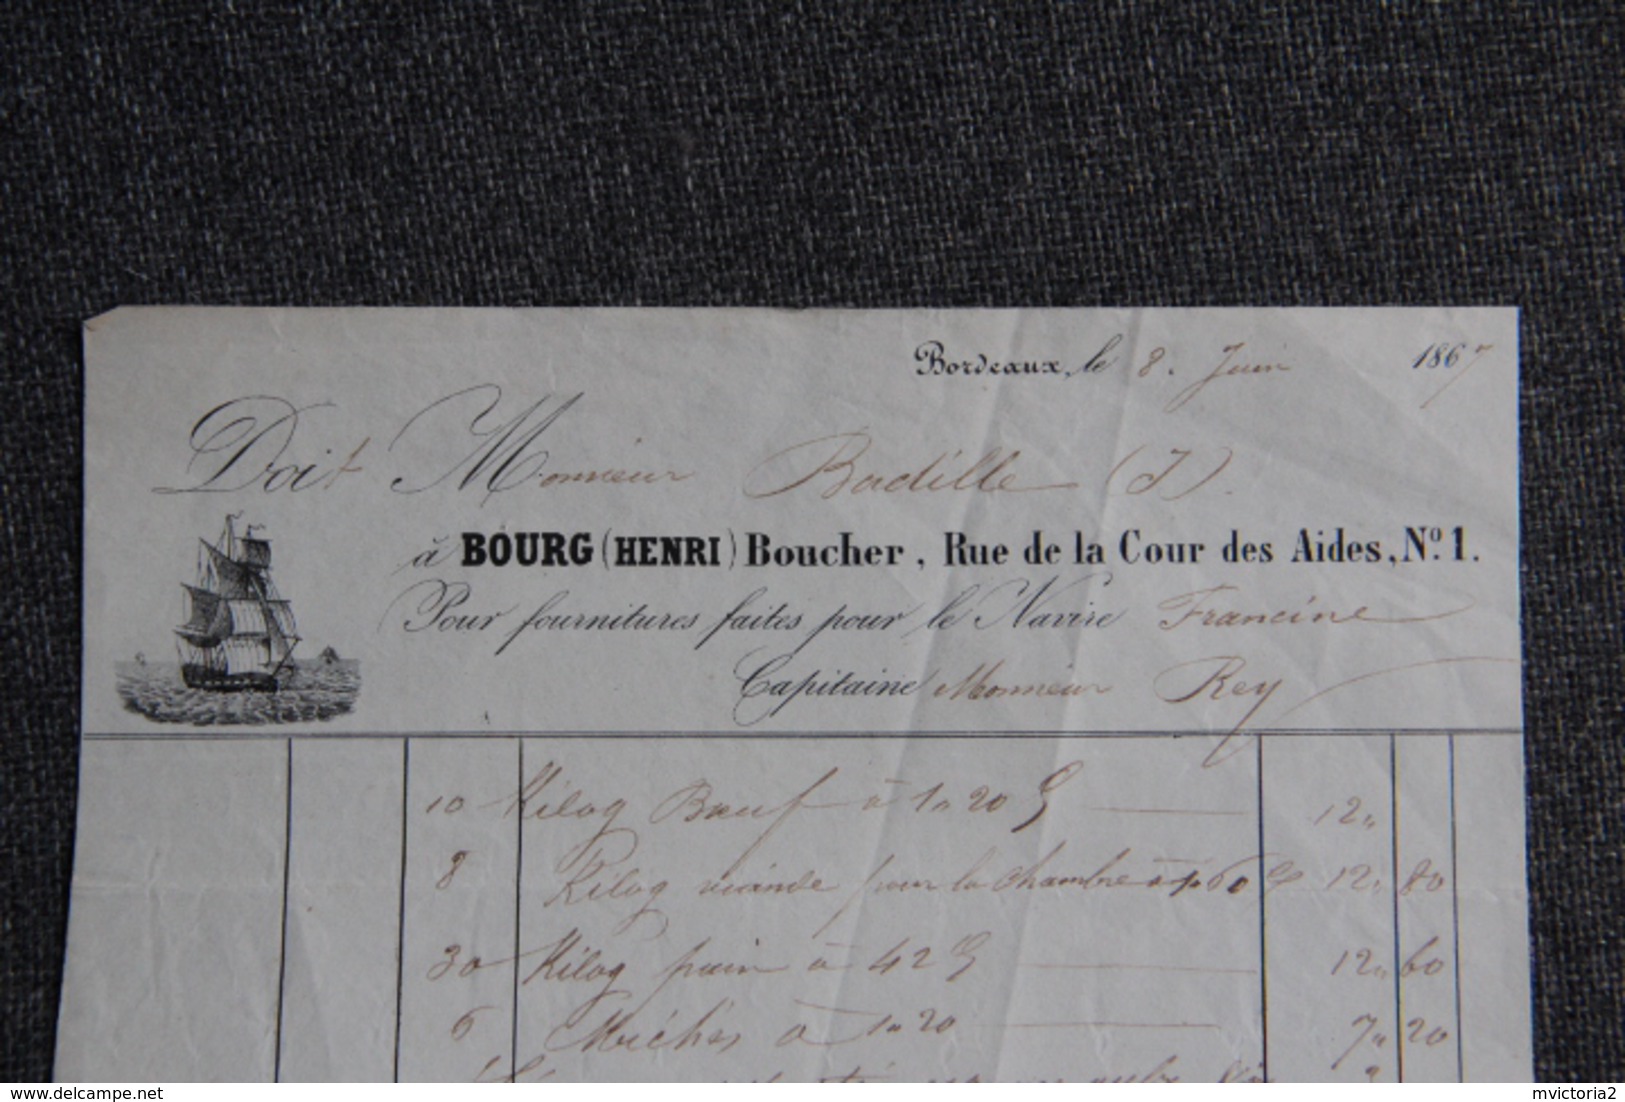 Bordeaux, le 8. Juin 1867
Doit Monsieur Badille (J).
à BOURG (HENRI) Boucher, Rue de la Cour des Aides, Nº 1.
Pour fournitures faites pour le Navire Francine
Capitaine Monsieur Rey
10 Kilog Bœuf à 1 20 12
8 Kilog viande pour la chambre à 1 60 12 80
30 Kilog pain à 42 12 60
6 Miches à 1 20 7 20
delcampe.net
mvictoria2